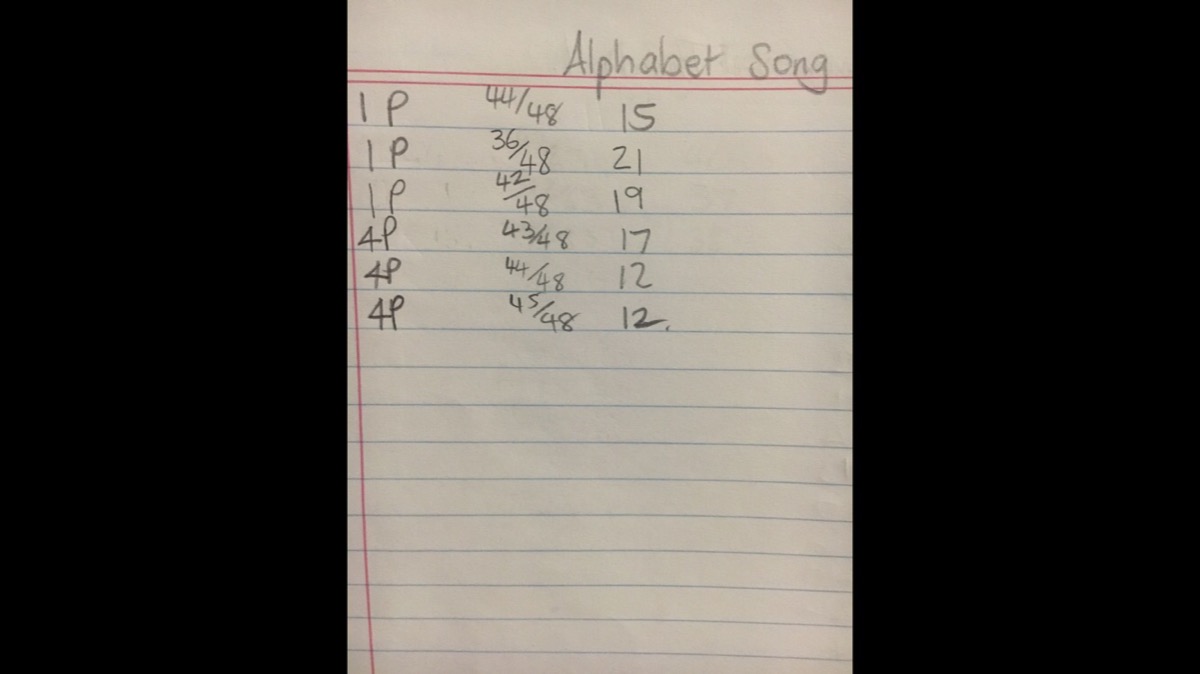 Alphabet Song
1 P 44/48 15
1 P 36/48 21
1 P 42/48 19
4P 43/48 17
4P 44/48 12
4P 45/48 12.